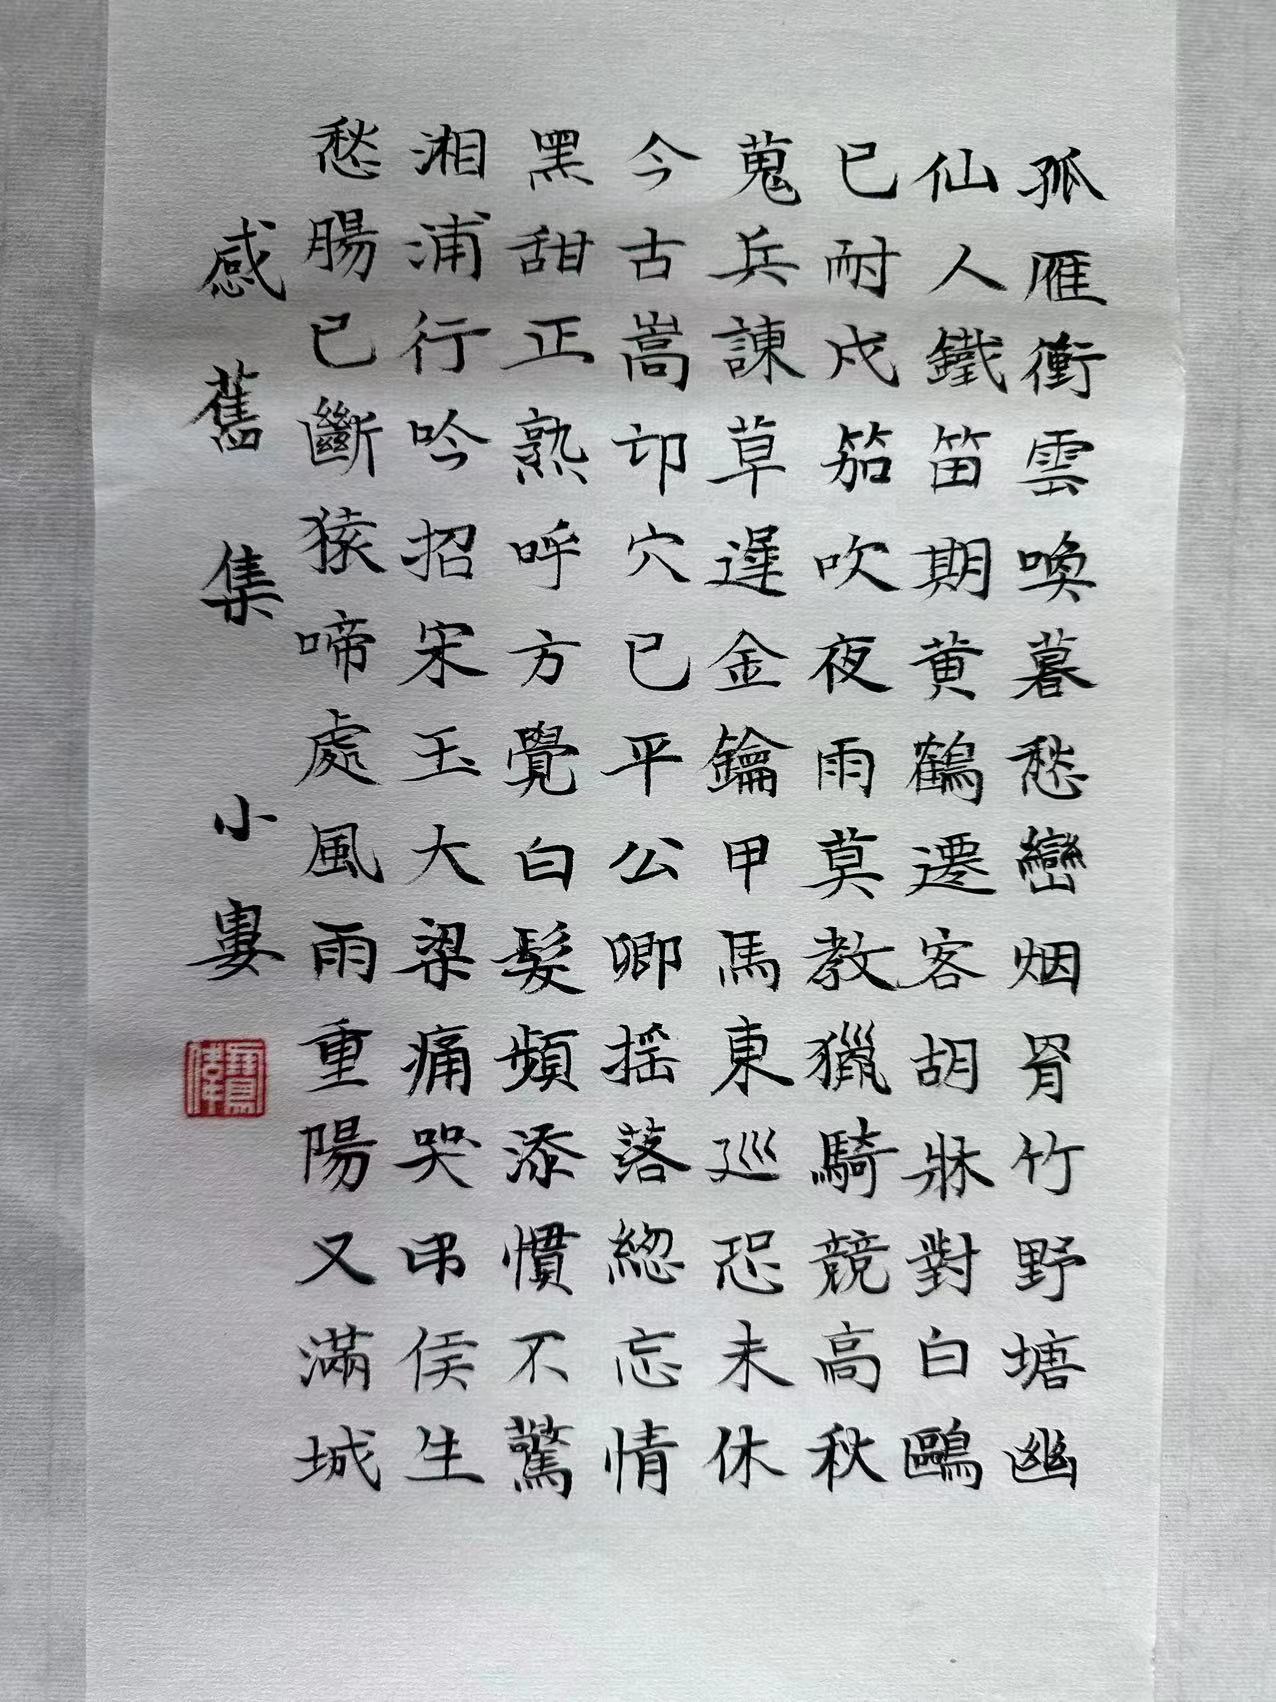 孤雁衝雲喚暮愁巒烟罥竹野塘幽
仙人鐵笛期黄鶴遷客胡牀對白鷗
已耐戍笳吹夜雨莫教獵騎競高秋
蒐兵諫草遲金鑰甲馬東巡恐未休
今古嵩邙穴已平公卿摇落緫忘情
黑甜正熟呼方覺白髮頻添慣不驚
湘浦行吟招宋玉大梁痛哭弔侯生
愁腸已斷猿啼處風雨重陽又滿城
感舊集 小婁